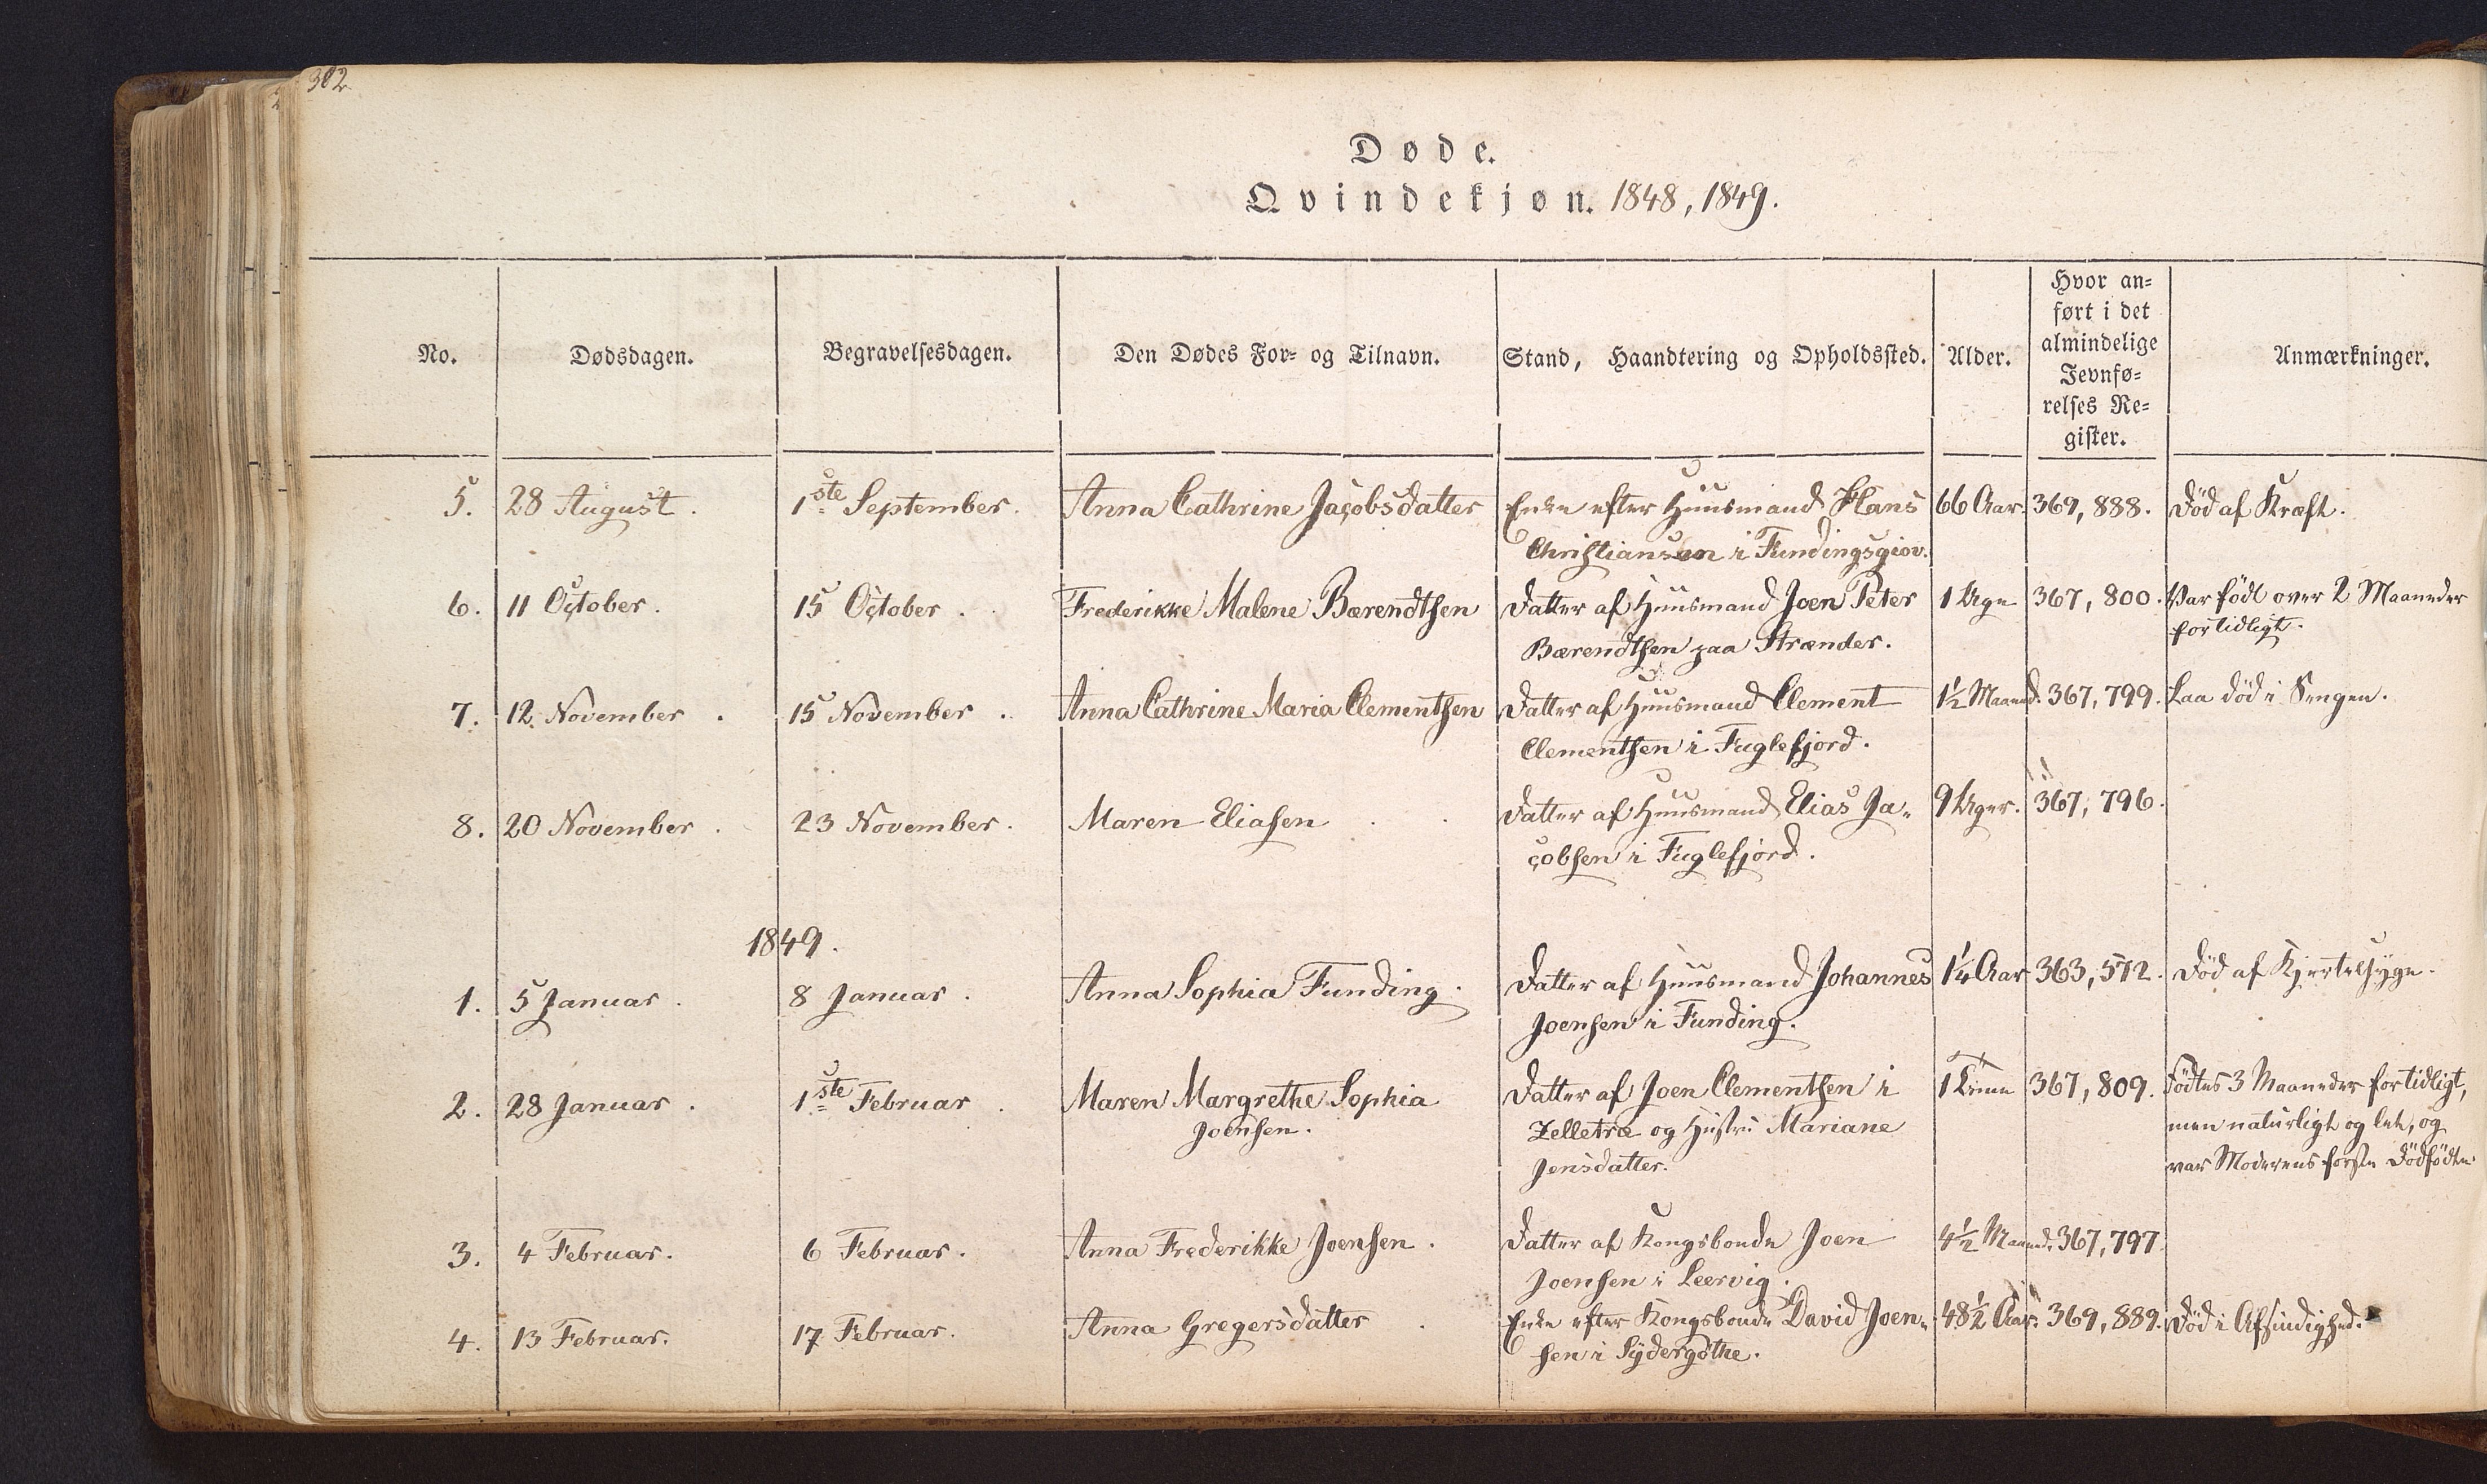 302
Døde.
Qvindekjøn. 1848, 1849.
No. Dødsdagen. Begravelsesdagen. Den Dødes For- og Tilnavn. Stand, Haandtering og Opholdssted. Alder. Hvor an-
ført i det
almindelige
Jevnfø-
relses Re-
gister. Anmærkninger.
5. 28 August. 1ste September. Anna Cathrine Jacobsdatter Enke efter Huusmand Hans 66 Aar. 369, 888. Død af Kræft.
Christiansen i Fundingsgiov.
6. 11 October. 15 October. Frederikke Malene Bærendthsen Datter af Huusmand Joen Peter 1 Uge 367, 800. Var født over 2 Maaneder
Bærendthsen paa Strænder. for tidligt.
7. 12 November. 15 November. Anna Cathrine Maria Clementsen Datter af Huusmand Clement 1½ Maaned. 367, 799. Laa død i Sengen.
Clementsen i Fuglefjord.
8. 20 November. 23 November. Maren Eliasen Datter af Huusmand Elias Ja- 9 Uger. 367, 796.
cobsen i Fuglefjord.
1849.
1. 5 Januar. 8 Januar. Anna Sophia Funding. Datter af Huusmand Johannes 1¼ Aar 363, 572. Død af Kjertelsyge.
Joensen i Funding.
2. 28 Januar. 1ste Februar. Maren Margrethe Sophia Datter af Joen Clementsen i 1 Time 367, 809. Fødtes 3 Maaneder for tidligt,
Joensen. Zelletræ og Hustru Mariane men naturligt og let, og
Jensdatter. var Moderens første Dødfødte
3. 4 Februar. 6 Februar. Anna Frederikke Joensen. Datter af Kongsbonde Joen 4½ Maaned. 367, 797.
Joensen i Leervig.
4. 13 Februar. 17 Februar. Anna Gregersdatter. Enke efter Kongsbonde David Joen- 48½ Aar. 369, 889. Død i Afsindighed.
sen i Sydergøthe.